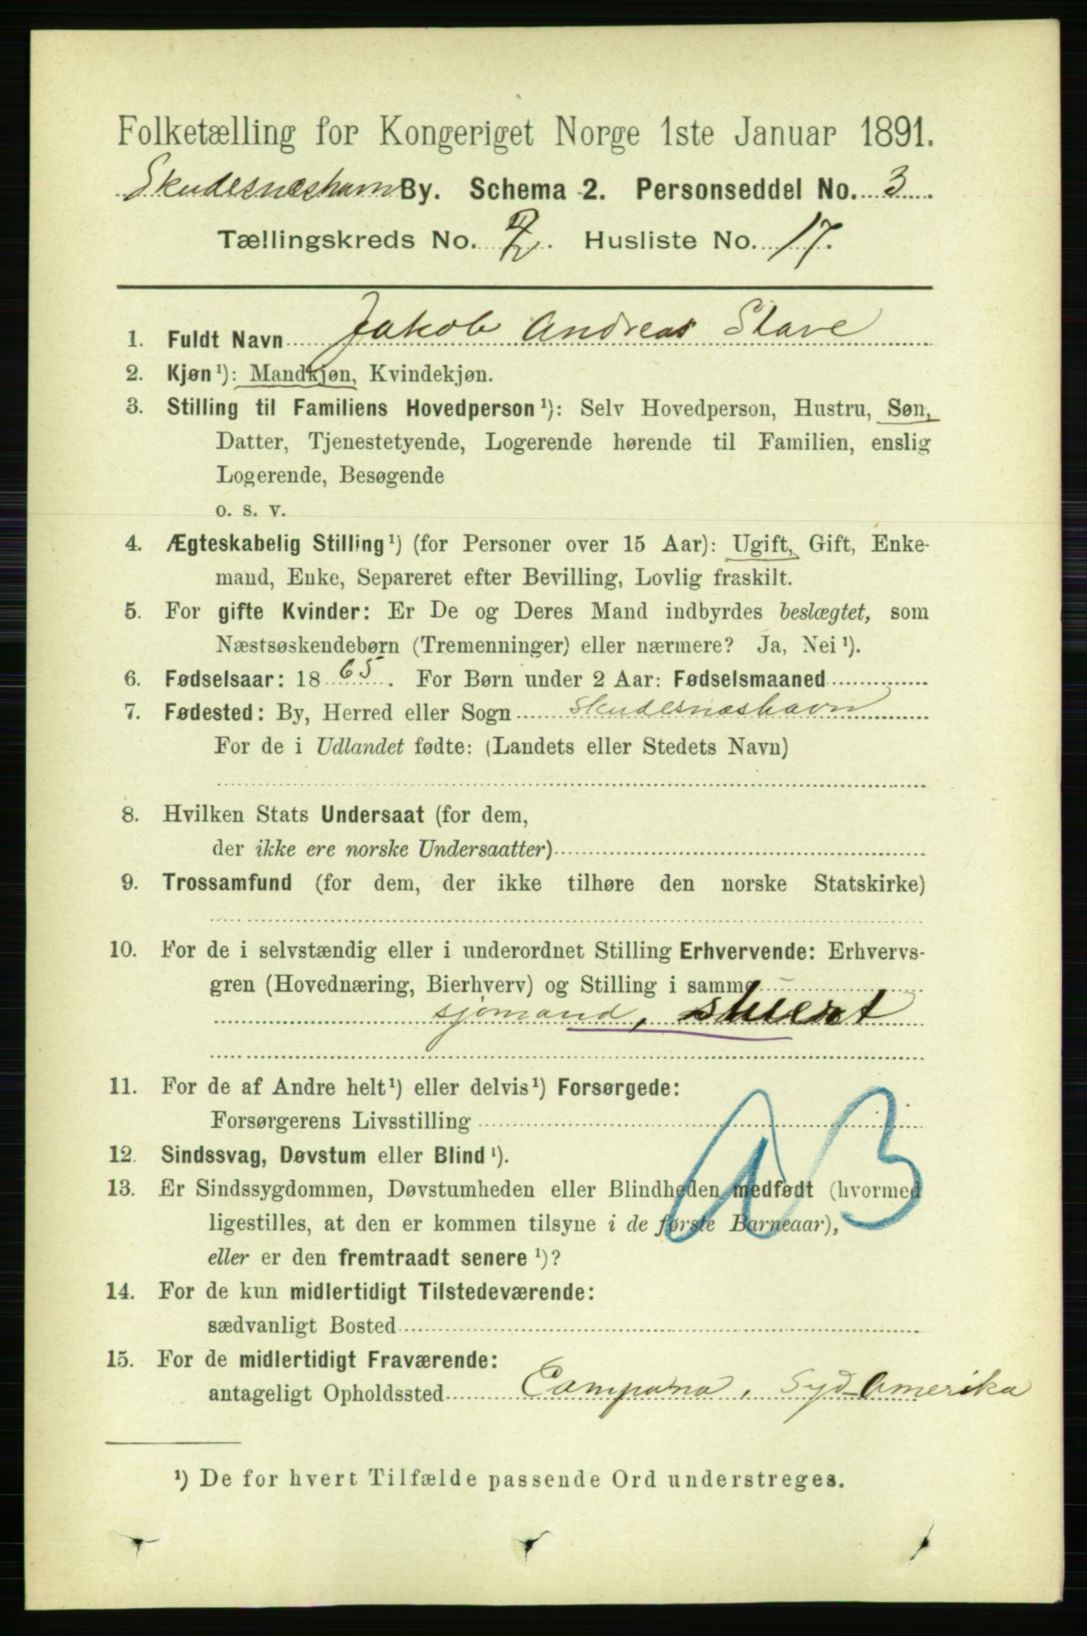 Folketælling for Kongeriget Norge 1ste Januar 1891.
Skudesnæshavn By. Schema 2. Personseddel No. 3.
Tællingskreds No. 2. Husliste No. 17.
1. Fuldt Navn Jakob Andreas Stave
2. Kjøn¹): Mandkjøn, Kvindekjøn.
3. Stilling til Familiens Hovedperson¹): Selv Hovedperson, Hustru, Søn,
Datter, Tjenestetyende, Logerende hørende til Familien, enslig
Logerende, Besøgende
o. s. v.
4. Ægteskabelig Stilling¹) (for Personer over 15 Aar): Ugift, Gift, Enke-
mand, Enke, Separeret efter Bevilling, Lovlig fraskilt.
5. For gifte Kvinder: Er De og Deres Mand indbyrdes beslægtet, som
Næstsøskendebørn (Tremenninger) eller nærmere? Ja, Nei¹).
6. Fødselsaar: 1865. For Børn under 2 Aar: Fødselsmaaned
7. Fødested: By, Herred eller Sogn Skudesnæshavn
For de i Udlandet fødte: (Landets eller Stedets Navn)
8. Hvilken Stats Undersaat (for dem,
der ikke ere norske Undersaatter)
9. Trossamfund (for dem, der ikke tilhøre den norske Statskirke)
10. For de i selvstændig eller i underordnet Stilling Erhvervende: Erhvervs-
gren (Hovednæring, Bierhverv) og Stilling i samme
sjømand, stuert
11. For de af Andre helt¹) eller delvis¹) Forsørgede:
Forsørgerens Livsstilling
12. Sindssvag, Døvstum eller Blind¹).
13. Er Sindssygdommen, Døvstumheden eller Blindheden medfødt (hvormed
ligestilles, at den er kommen tilsyne i de første Barneaar),
eller er den fremtraadt senere¹)?
14. For de kun midlertidigt Tilstedeværende:
sædvanligt Bosted
15. For de midlertidigt Fraværende:
antageligt Opholdssted Campana, Syd-Amerika
¹) De for hvert Tilfælde passende Ord understreges.